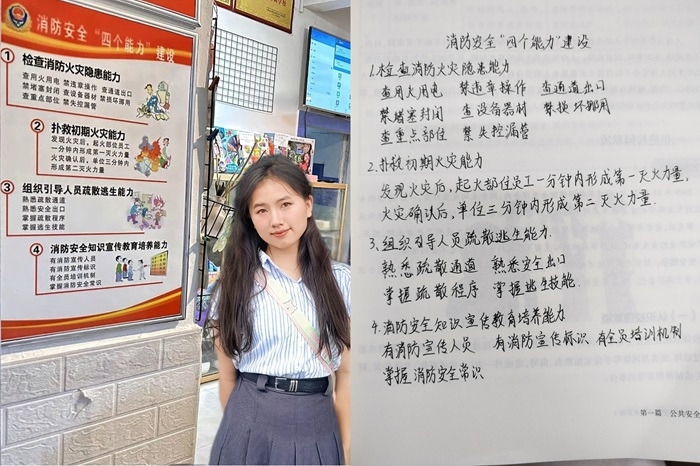 消防安全“四个能力”建设
1 检查消防火灾隐患能力
查用火用电 禁违章操作 查通道出口
禁堵塞封闭 查设备器材 禁损坏挪用
查重点部位 禁失控漏管
2 扑救初期火灾能力
发现火灾后，起火部位员工
一分钟内形成第一灭火力量
火灾确认后，单位三分钟内
形成第二灭火力量
3 组织引导人员疏散逃生能力
熟悉疏散通道
熟悉安全出口
掌握疏散程序
掌握逃生技能
4 消防安全知识宣传教育培养能力
有消防宣传人员
有消防宣传标识
有全员培训机制
掌握消防安全常识
消防安全“四个能力”建设
1.检查消防火灾隐患能力
查用火用电 禁违章操作 查通道出口
禁堵塞封闭 查设备器材 禁损坏挪用
查重点部位 禁失控漏管
2.扑救初期火灾能力
发现火灾后，起火部位员工一分钟内形成第一灭火力量，
火灾确认后，单位三分钟内形成第二灭火力量.
3.组织引导人员疏散逃生能力.
熟悉疏散通道 熟悉安全出口
掌握疏散程序 掌握逃生技能.
4.消防安全知识宣传教育培养能力
有消防宣传人员 有消防宣传标识 有全员培训机制
掌握消防安全常识
第一篇 公共安全